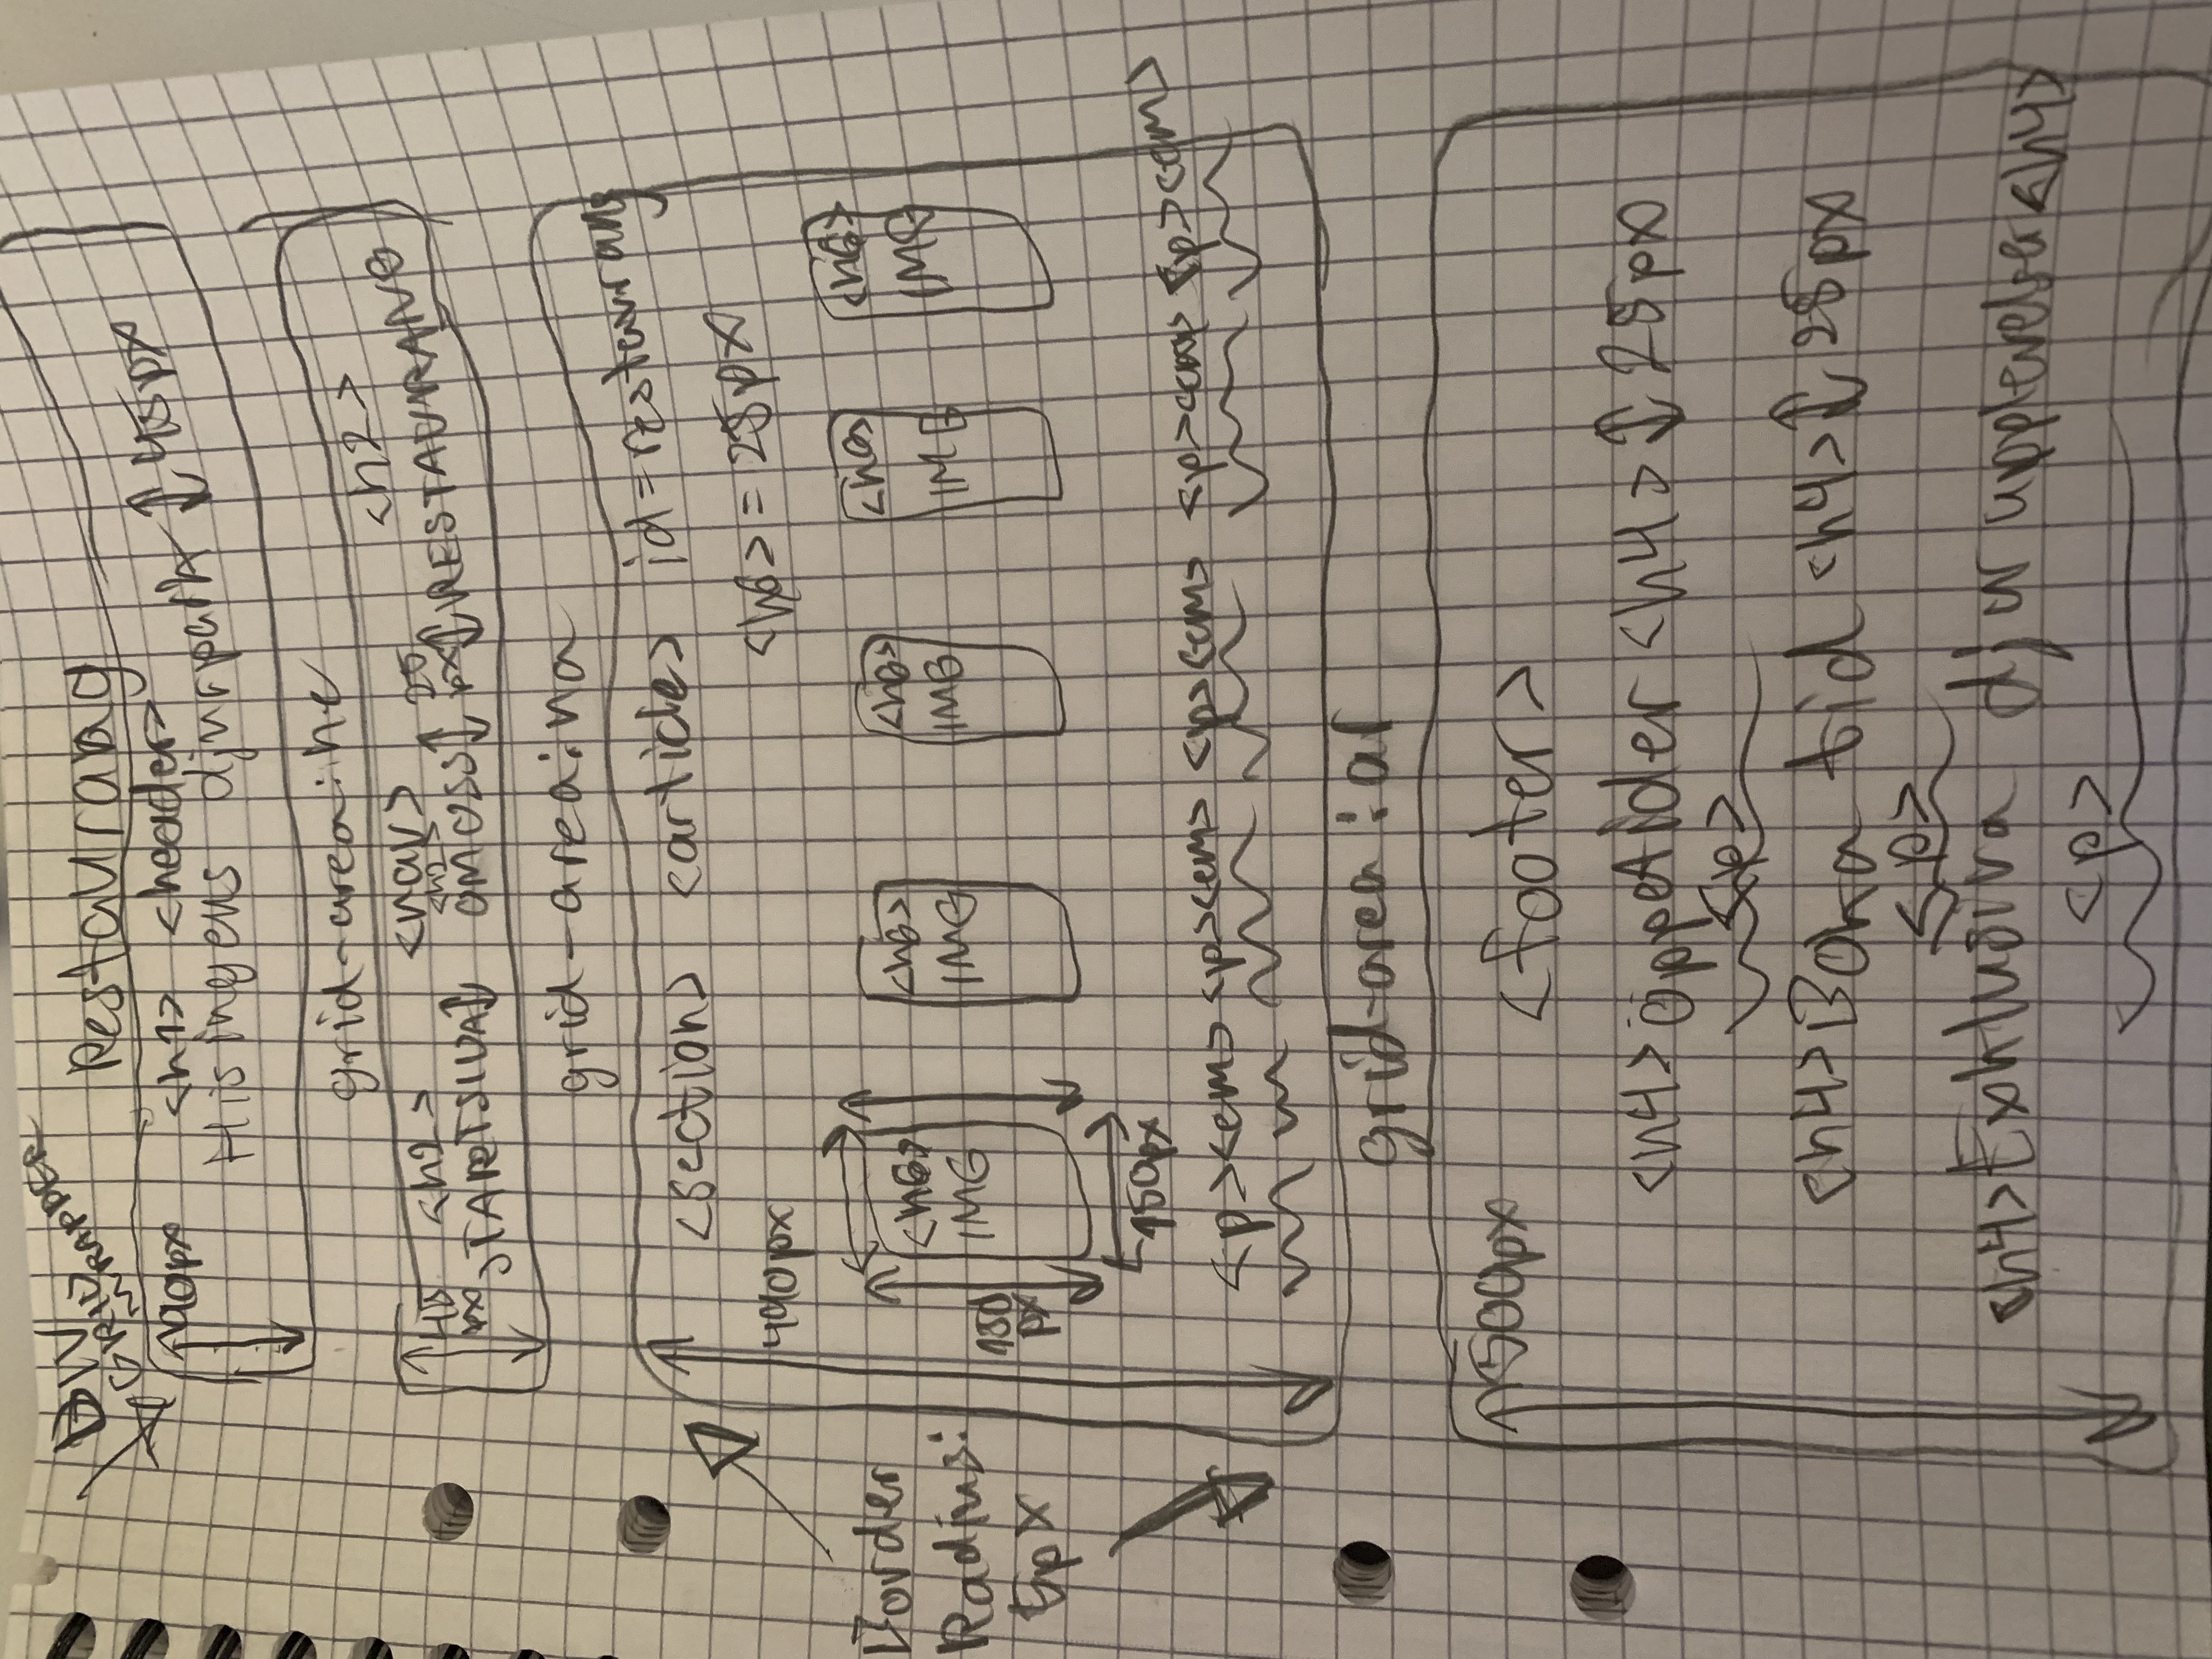 DIV
GRID
WRAPPER
Restaurang
90px <h1> <header>
Hisingens djurpark 45px
grid-area:he
<h2> <nav> <h2>
45 px STARTSIDA <h2> OMOSS 25 px RESTAURANG
grid-area:na
<section> <article> id=restaurang
<h6> = 25px
490px
Border
Radius:
5px
<h6> <h6> <h6> <h6> <h6>
IMG IMG IMG IMG IMG
px
150px
<p><em> <p><em> <p><em> <p><em> <p><em>
grid-area:ar
500px <footer>
<h4>öppetider<h4> 25px
<p>
<h4>Boka tid <h4> 25px
<p>
<h4>Exklusiva djur upplevelser<h4>
<p>